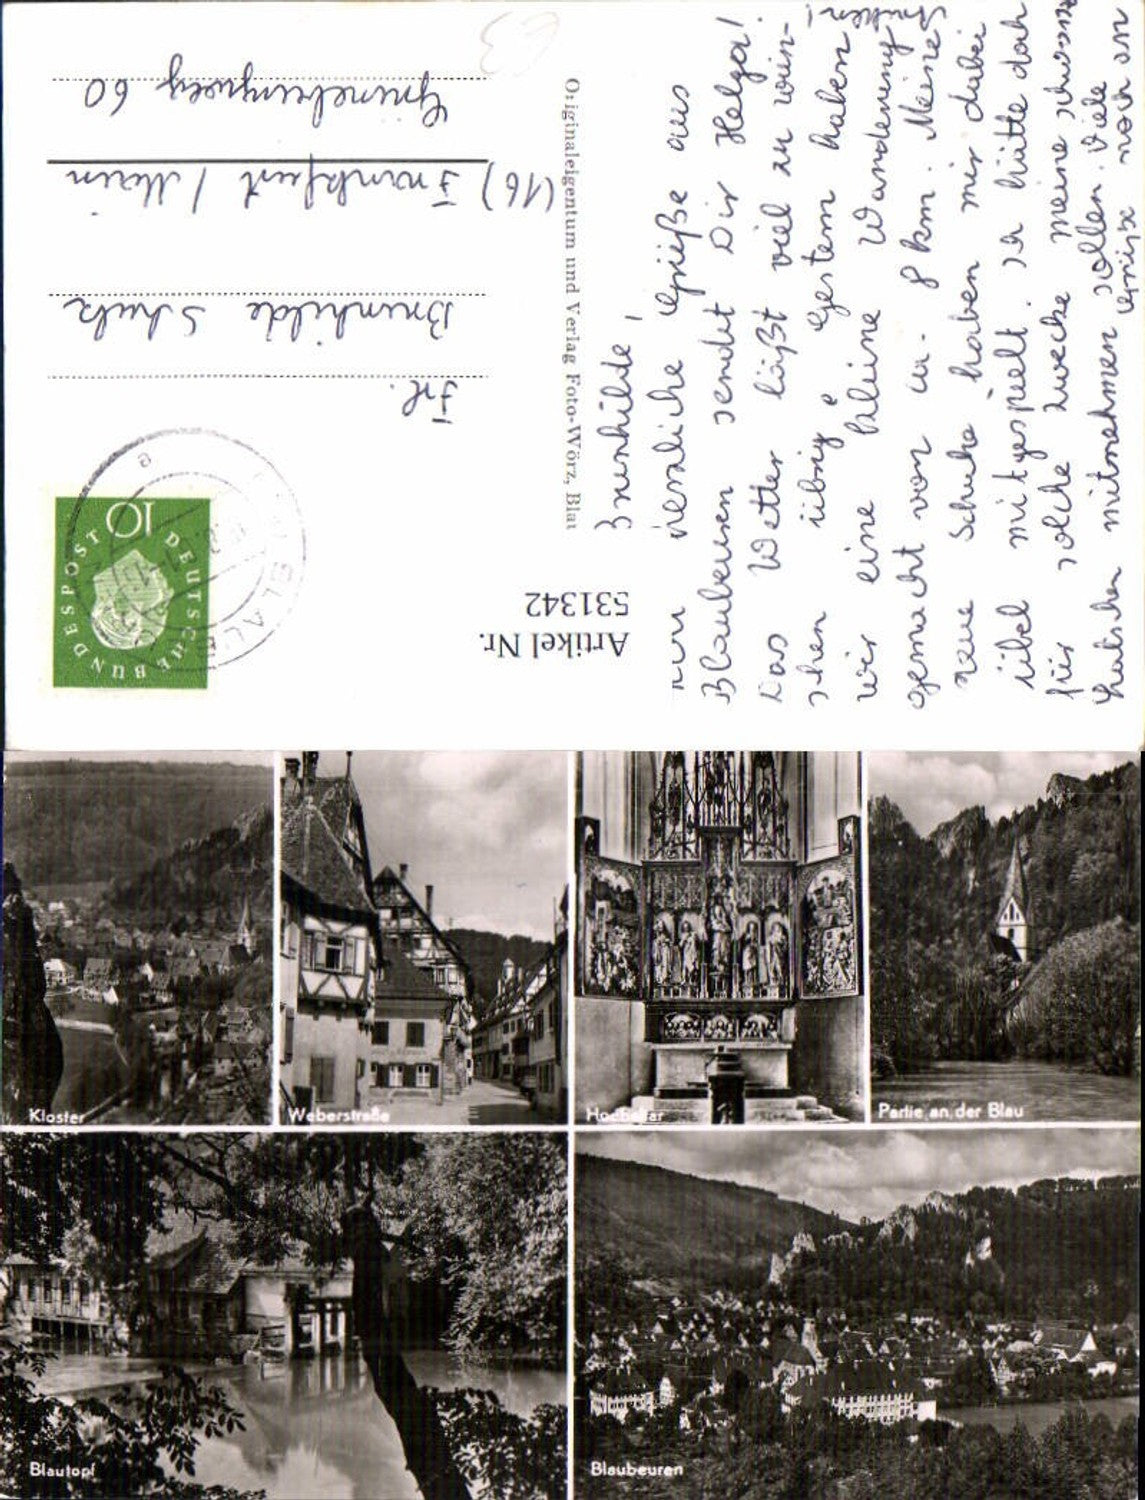 Frl.
Brunhilde Schulz
(16) Frankfurt / Main
Grüneburgweg 60
DEUTSCHE BUNDESPOST
10
Originaleigentum und Verlag Foto-Wörz, Blau
Artikel Nr.
531342
Brunhilde,
herzliche Grüße aus
Blaubeuren sendet Dir Helga!
Das Wetter läßt viel zu wün-
schen übrig. Gestern haben
wir eine kleine Wanderung
gemacht von ca. 8 km. Meine
neue Schuhe haben mir dabei
übel mitgespielt. Ich hätte doch
für solche Zwecke meine schwarze
Latschen mitnehmen sollen. Viele
Grüße noch an
Kloster
Weberstraße
Hochaltar
Partie an der Blau
Blautopf
Blaubeuren